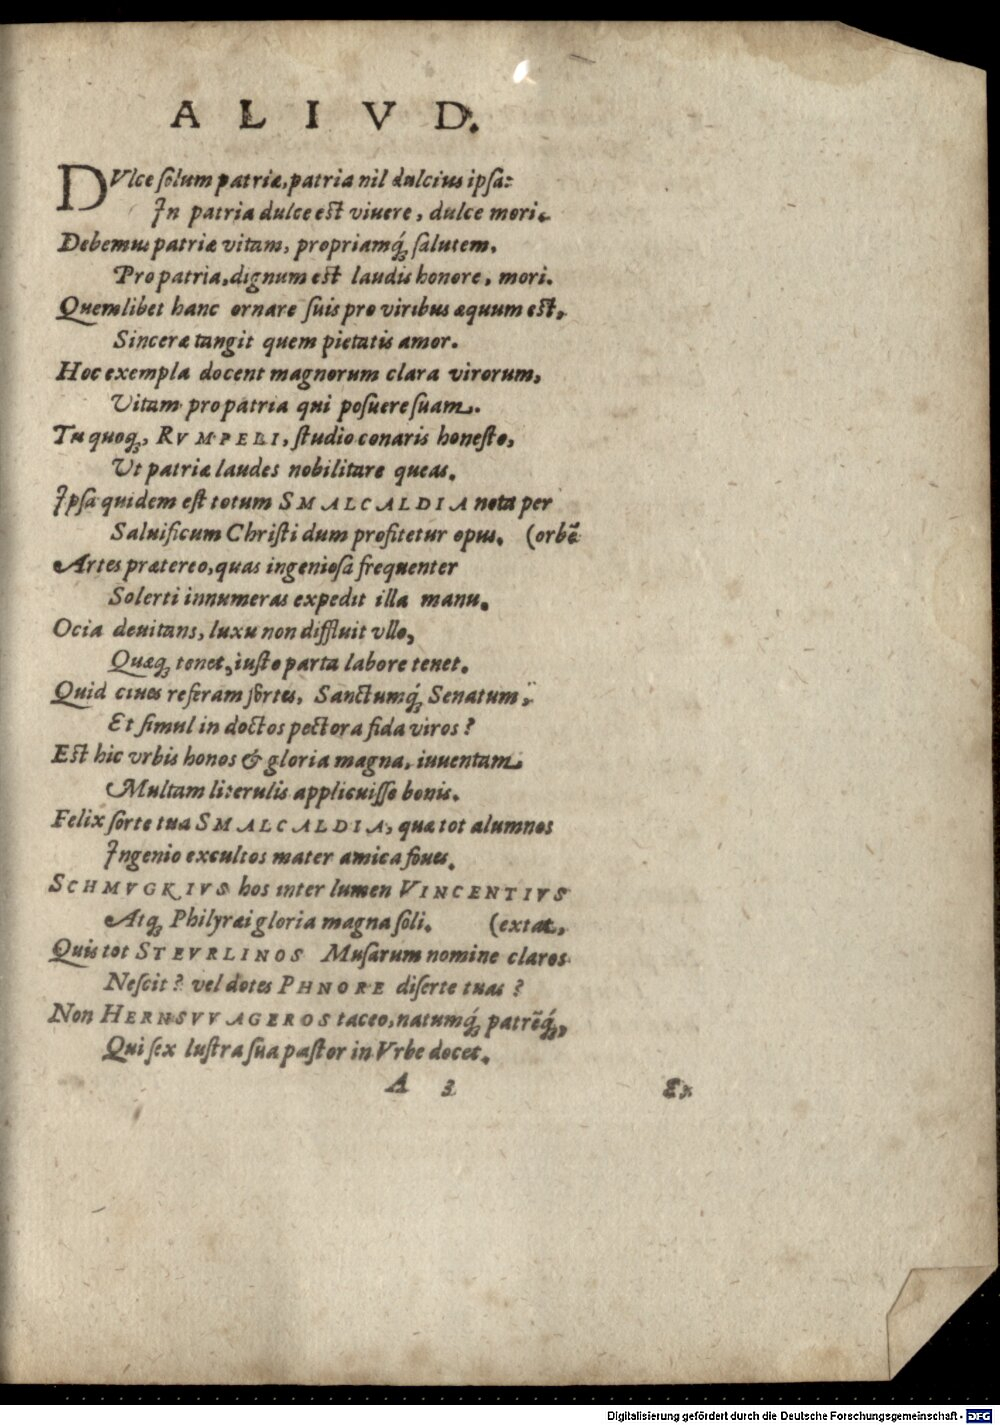 ALIVD.
DVlce solum patriæ, patria nil dulcius ipsa:
In patria dulce est viuere, dulce mori.
Debemus patriæ vitam, propriamq́; salutem,
Pro patria, dignum est laudis honore, mori.
Quemlibet hanc ornare suis pro viribus æquum est,
Sinceræ tangit quem pietatis amor.
Hoc exempla docent magnorum clara virorum,
Vitam pro patria qui posuere suam.
Tu quoq;, RVMPELI, studio conaris honesto,
Vt patriæ laudes nobilitare queas.
Ipsa quidem est totum SMALCALDIA nota per
Saluificum Christi dum profitetur opus. (orbē
Artes prætereo, quas ingeniosa frequenter
Solerti innumeras expedit illa manu.
Ocia deuitans, luxu non diffluit vllo,
Quæq; tenet, iusto parta labore tenet.
Quid ciues referam fortes, Sanctumq́; Senatum,
Et simul in doctos pectora fida viros?
Est hic vrbis honos & gloria magna, iuuentam
Multam literulis applicuisse bonis.
Felix sorte tua SMALCALDIA, quæ tot alumnos
Ingenio excultos mater amica foues.
SCHMVGKIVS hos inter lumen VINCENTIVS
Atq; Philyræi gloria magna soli. (extat,
Quis tot STEVRLINOS Musarum nomine claros
Nescit? vel dotes PHNORE diserte tuas?
Non HERNSVVAGEROS taceo, natumq́; patrēq́;,
Qui sex lustra sua pastor in Vrbe docet.
A 3 Ex
Digitalisierung gefördert durch die Deutsche Forschungsgemeinschaft - DFG